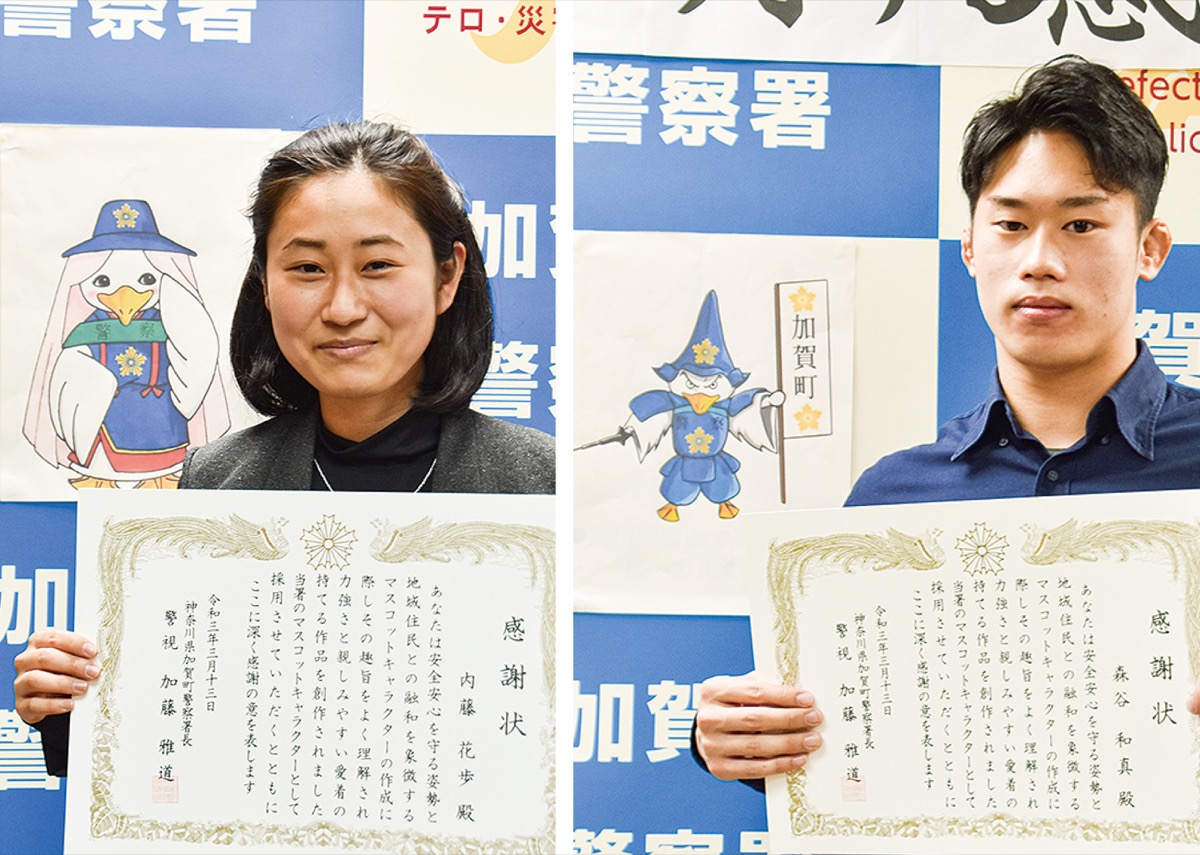 警察署
テロ・災
加
賀
警察
警察
加
内藤花歩殿
感謝状
あなたは安全安心を守る姿勢と
地域住民との融和を象徴する
マスコットキャラクターの作成に
際しその趣旨をよく理解され
力強さと親しみやすい愛着の
持てる作品を創作されました
当署のマスコットキャラクターとして
採用させていただくとともに
ここに深く感謝の意を表します
令和三年三月十三日
神奈川県加賀町警察署長
警視 加藤雅道
警察署
efect
lic
賀
加賀町
警察
加賀
警察
感謝状
森谷和真殿
あなたは安全安心を守る姿勢と
地域住民との融和を象徴する
マスコットキャラクターの作成に
際しその趣旨をよく理解され
力強さと親しみやすい愛着の
持てる作品を創作されました
当署のマスコットキャラクターとして
採用させていただくとともに
ここに深く感謝の意を表します
令和三年三月十三日
神奈川県加賀町警察署長
警視 加藤雅道